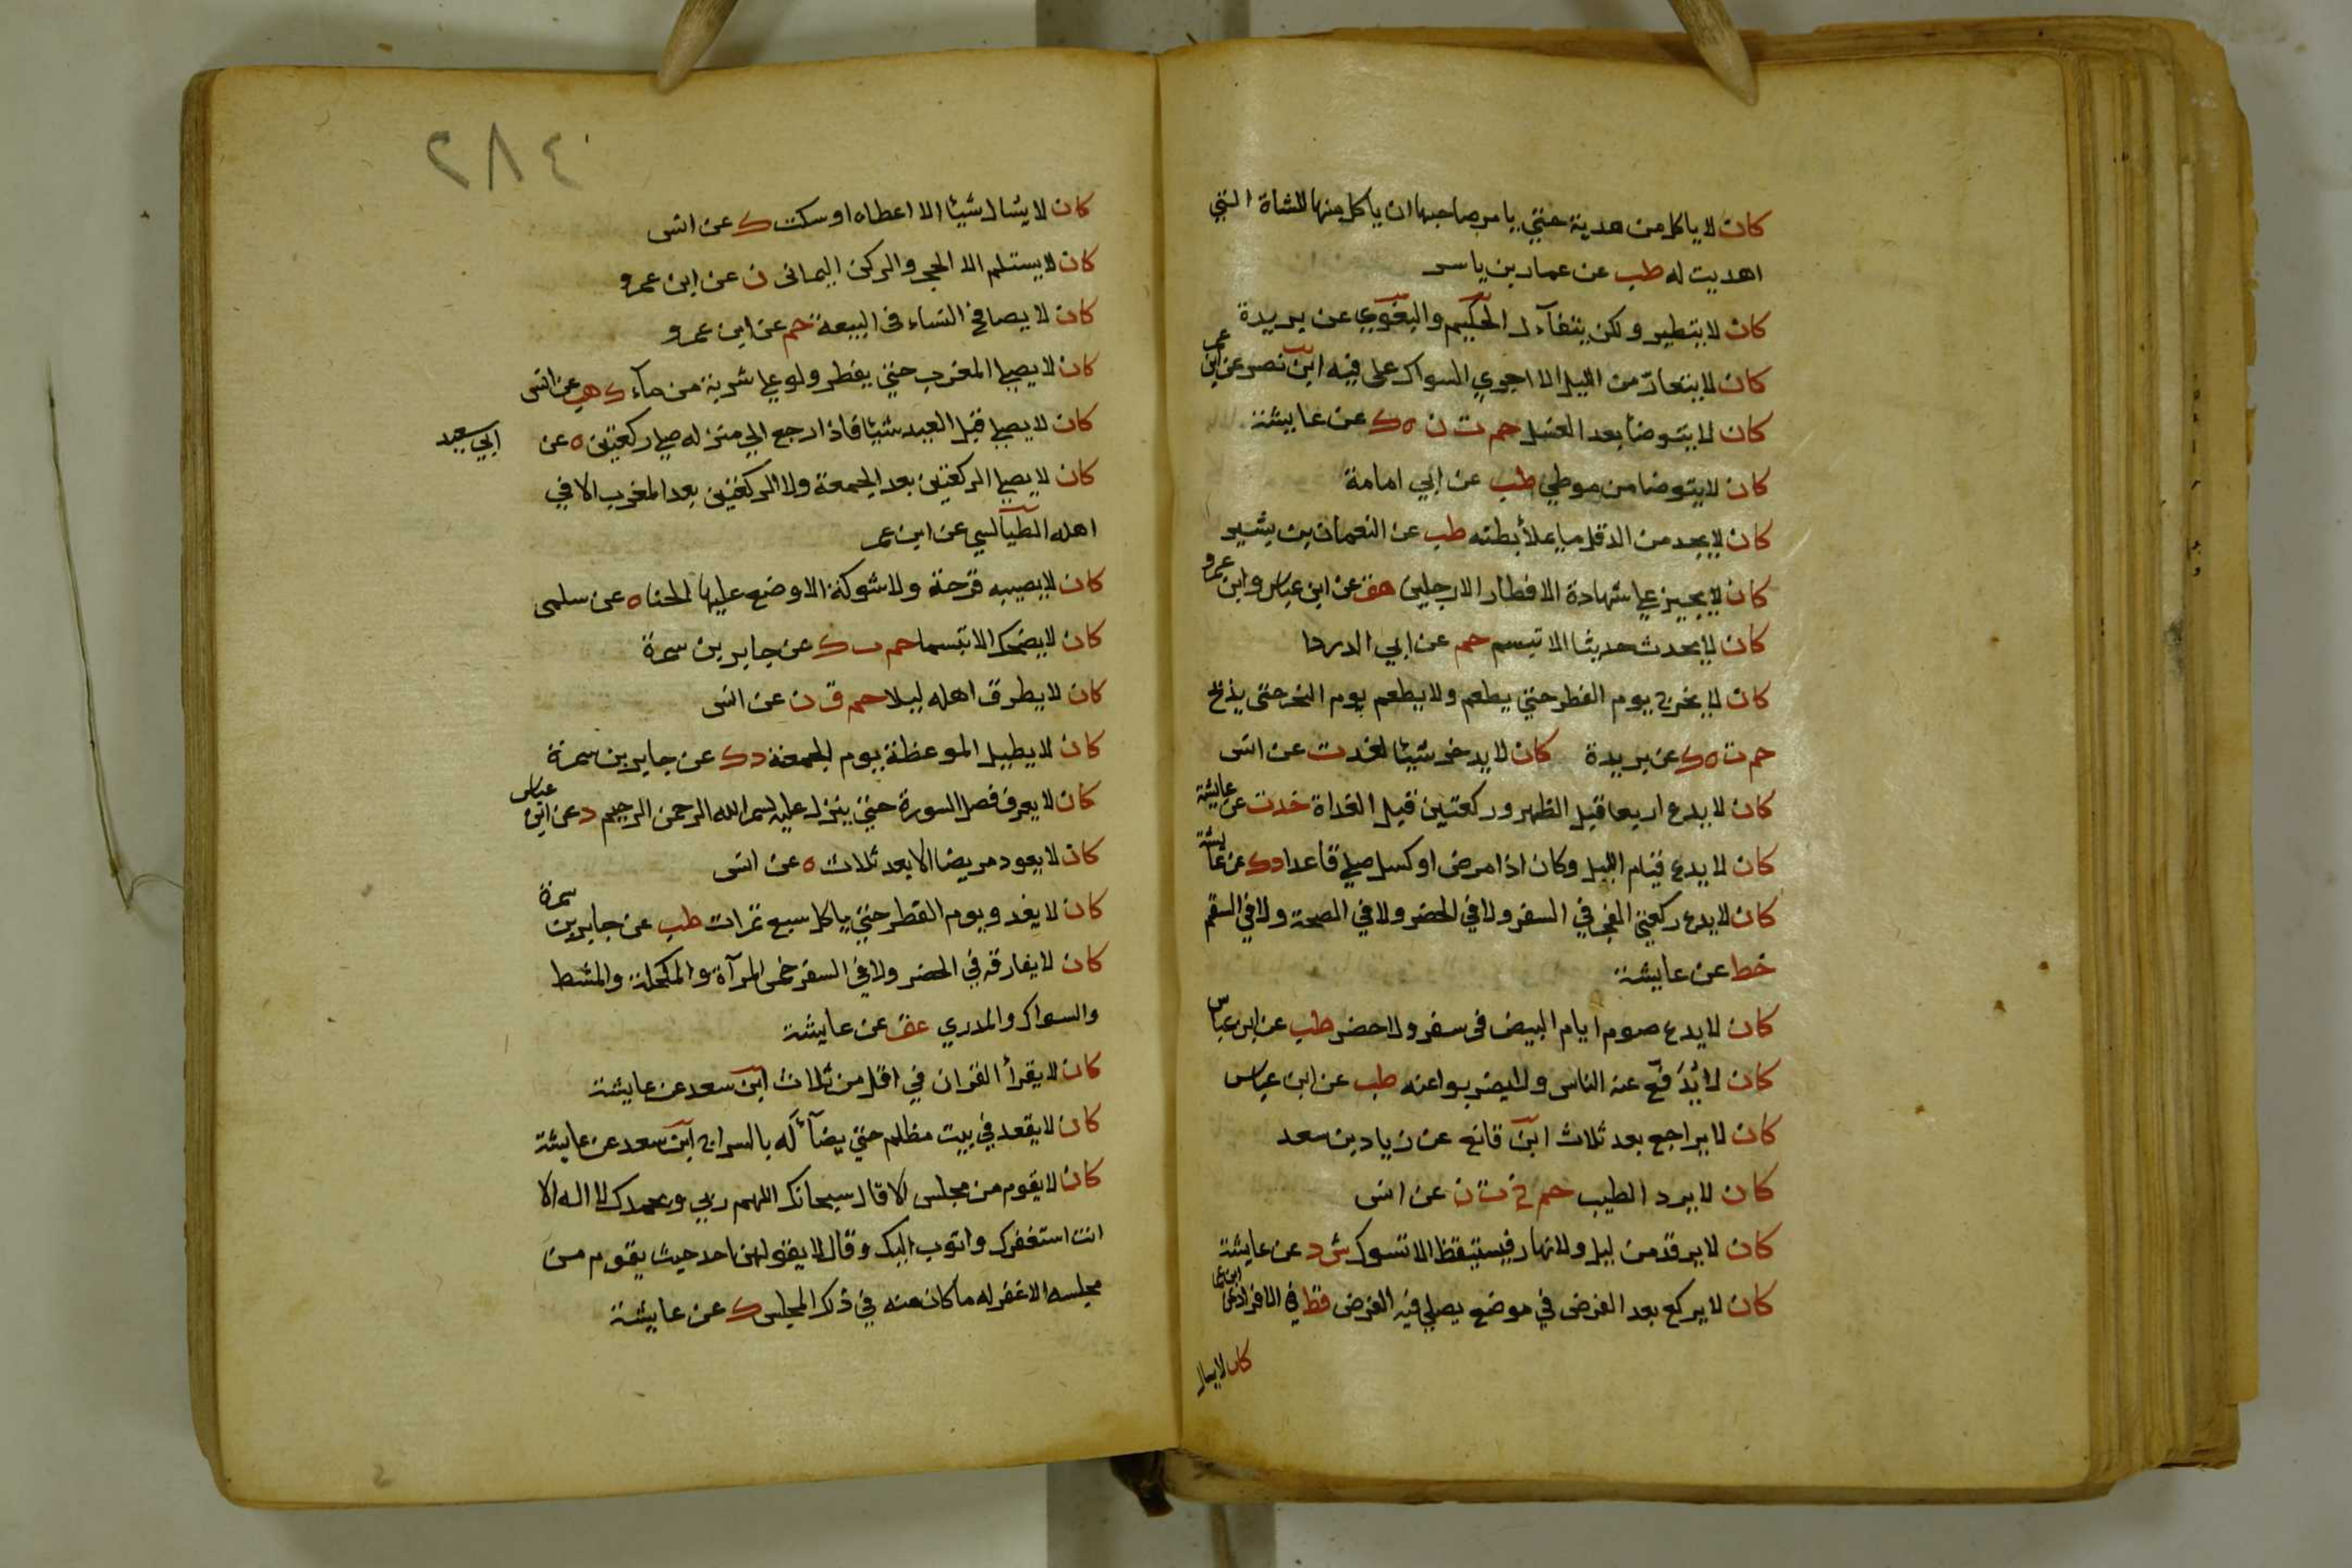 كان لا ياكل من هدية حتي يامر صاحبها ان ياكل منها للشاة التي
اهديت له طب عن عمار بن ياسر
كان لا يتطير ولكن يتفآءل الحكيم والبغوي عن بريدة
كان لا يتعار من الليل الا اجري السواك علي فيه ابن نصر عن ابن عمر
كان لا يتوضا بعد الغسل حم ت ن ه ك عن عايشة
كان لا يتوضا من موطي طب عن ابي امامة
كان لا يجد من الدقل ما يملأ بطنه طب عن النعمان بن بشير
كان لا يجيز علي شهادة الافطار الا رجلين هق عن ابن عباس وابن عمرو
كان لا يحدث حديثا الا تبسم حم عن ابي الدردا
كان لا يخرج يوم الفطر حتي يطعم ولا يطعم يوم النحر حتي يذبح
حم ت ه ك عن بريدة كان لا يدخر شيئا لغد ت عن انس
كان لا يدع اربعا قبل الظهر وركعتين قبل الغداة خ د ت عن عايشة
كان لا يدع قيام الليل وكان اذا مرض او كسل صلي قاعدا د ك عن عايشة
كان لا يدع ركعتي الفجر في السفر ولا في الحضر ولا في الصحة ولا في السقم
خط عن عايشة
كان لا يدع صوم ايام البيض في سفر ولا حضر طب عن ابن عباس
كان لا يُدَفّع عنه الناس ولا يضربوا عنه طب عن ابن عباس
كان لا يراجع بعد ثلاث ابن قانع عن زياد بن سعد
كان لا يرد الطيب حم خ ت ن عن انس
كان لا يرقد من ليل ولا نهار فيستيقظ الا تسوك ش د عن عايشة
كان لا يركع بعد الفرض في موضع يصلي فيه الفرض قط في الافراد عن ابن عمر
كان لا يسال
٤٨٢
كان لا يسال شيئا الا اعطاه او سكت ك عن انس
كان لا يستلم الا الحجر والركن اليماني ن عن ابن عمرو
كان لا يصافح النساء في البيعة حم عن ابن عمرو
كان لا يصلي المغرب حتي يفطر ولو علي شربة من مآء ك هب عن انس
كان لا يصلي قبل العيد شيئا فاذا رجع الي منزله صلي ركعتين ه عن ابي سعيد
كان لا يصلي الركعتين بعد الجمعة ولا الركعتين بعد المغرب الا في
اهله الطيالسي عن ابن عمر
كان لا يصيبه قرحة ولا شوكة الا وضع عليها الحنا ه عن سلمي
كان لا يضحك الا تبسما حم ت ك عن جابر بن سمرة
كان لا يطرق اهله ليلا حم ق ن عن انس
كان لا يطيل الموعظة يوم الجمعة د ك عن جابر بن سمرة
كان لا يعرف فصل السورة حتي ينزل عليه بسم الله الرحمن الرحيم د عن ابن عباس
كان لا يعود مريضا الا بعد ثلاث ه عن انس
كان لا يغدو يوم الفطر حتي ياكل سبع تمرات طب عن جابر بن سمرة
كان لا يفارقه في الحضر ولا في السفر خمس المرآة والمكحلة والمشط
والسواك والمدري عق عن عايشة
كان لا يقرأ القران في اقل من ثلاث ابن سعد عن عايشة
كان لا يقعد في بيت مظلم حتي يضآء له بالسراج ابن سعد عن عايشة
كان لا يقوم من مجلس الا قال سبحانك اللهم ربي وبحمدك لا اله الا
انت استغفرك واتوب اليك وقال لا يقولهن احد حيث يقوم من
مجلسه الا غفر له ما كان منه في ذلك المجلس ك عن عايشة